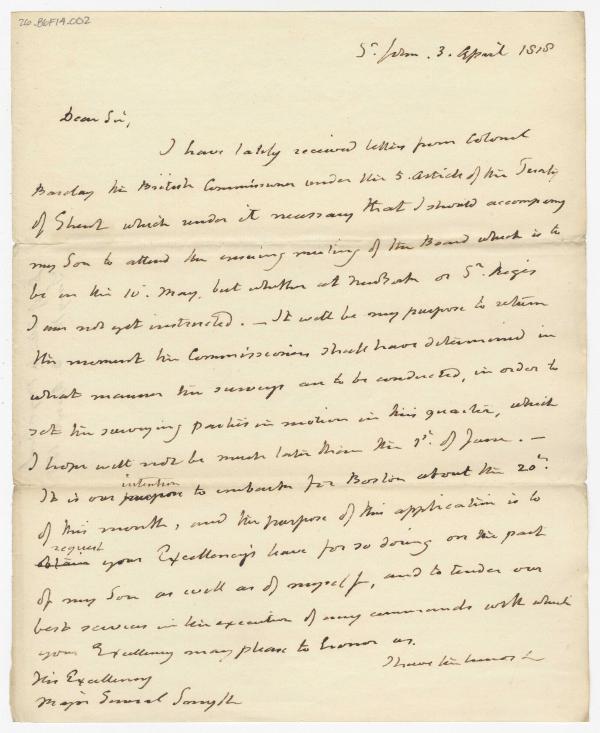 26.B6F14.002
St. John. 3. April 1818
Dear Sir,
I have lately received letters from Colonel
Barclay the British Commissioner under the 5. Article of the Treaty
of Ghent which render it necessary that I should accompany
my Son to attend the ensuing meeting of the Board which is to
be on the 10. May, but whether at NewYork or St. Regis
I am not yet instructed. — It will be my purpose to return
the moment the Commissioners shall have determined in
what manner the surveys are to be conducted, in order to
set the surveying parties in motion in this quarter, which
I hope will not be much later than the 1st. of June. —
intention
It is our purpose to embark for Boston about the 20th.
of this month, and the purpose of this application is to
request
obtain your Excellency's leave for so doing on the part
of my Son as well as of myself, and to tender our
best services in the execution of any commands with which
your Excellency may please to honor us.
I have the honor
His Excellency
Major General Smyth